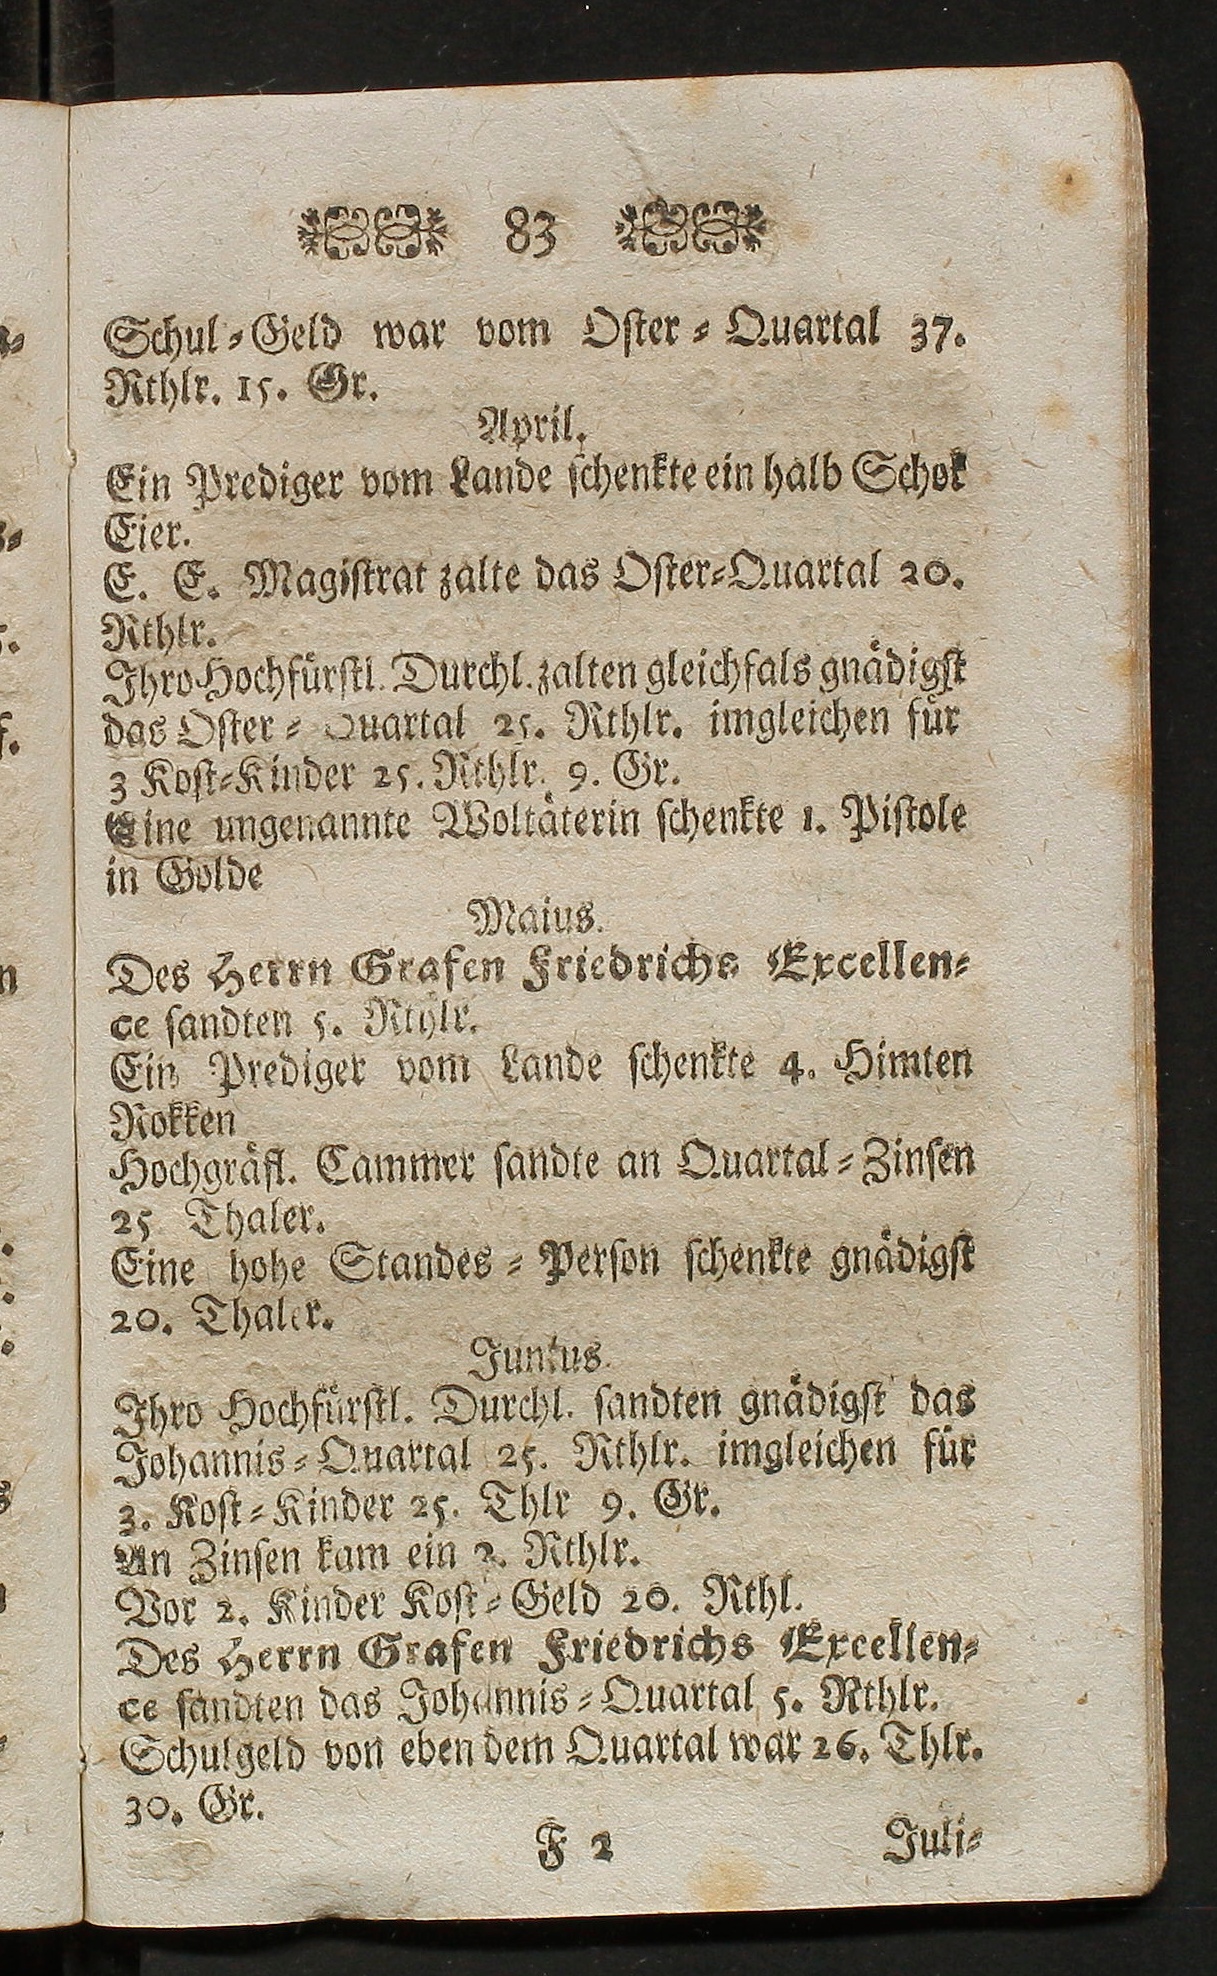 83
Schul-Geld war vom Oster-Quartal 37.
Rthlr. 15. Gr.
April.
Ein Prediger vom Lande schenkte ein halb Schok
Eier.
E. E. Magistrat zalte das Oster-Quartal 20.
Rthlr.
Ihro Hochfürstl. Durchl. zalten gleichfals gnädigst
das Oster-Quartal 25. Rthlr. imgleichen für
3 Kost-Kinder 25. Rthlr. 9. Gr.
Eine ungenannte Woltäterin schenkte 1. Pistole
in Golde
Maius.
Des Herrn Grafen Friedrichs Excellen-
ce sandten 5. Rthlr.
Ein Prediger vom Lande schenkte 4. Himten
Rokken
Hochgräfl. Cammer sandte an Quartal-Zinsen
25 Thaler.
Eine hohe Standes-Person schenkte gnädigst
20. Thaler.
Junius.
Ihro Hochfürstl. Durchl. sandten gnädigst das
Johannis-Quartal 25. Rthlr. imgleichen für
3. Kost-Kinder 25. Thlr 9. Gr.
An Zinsen kam ein 2. Rthlr.
Vor 2. Kinder Kost-Geld 20. Rthl.
Des Herrn Grafen Friedrichs Excellen-
ce sandten das Johannis-Quartal 5. Rthlr.
Schulgeld von eben dem Quartal war 26. Thlr.
30. Gr.
F 2 Juli-